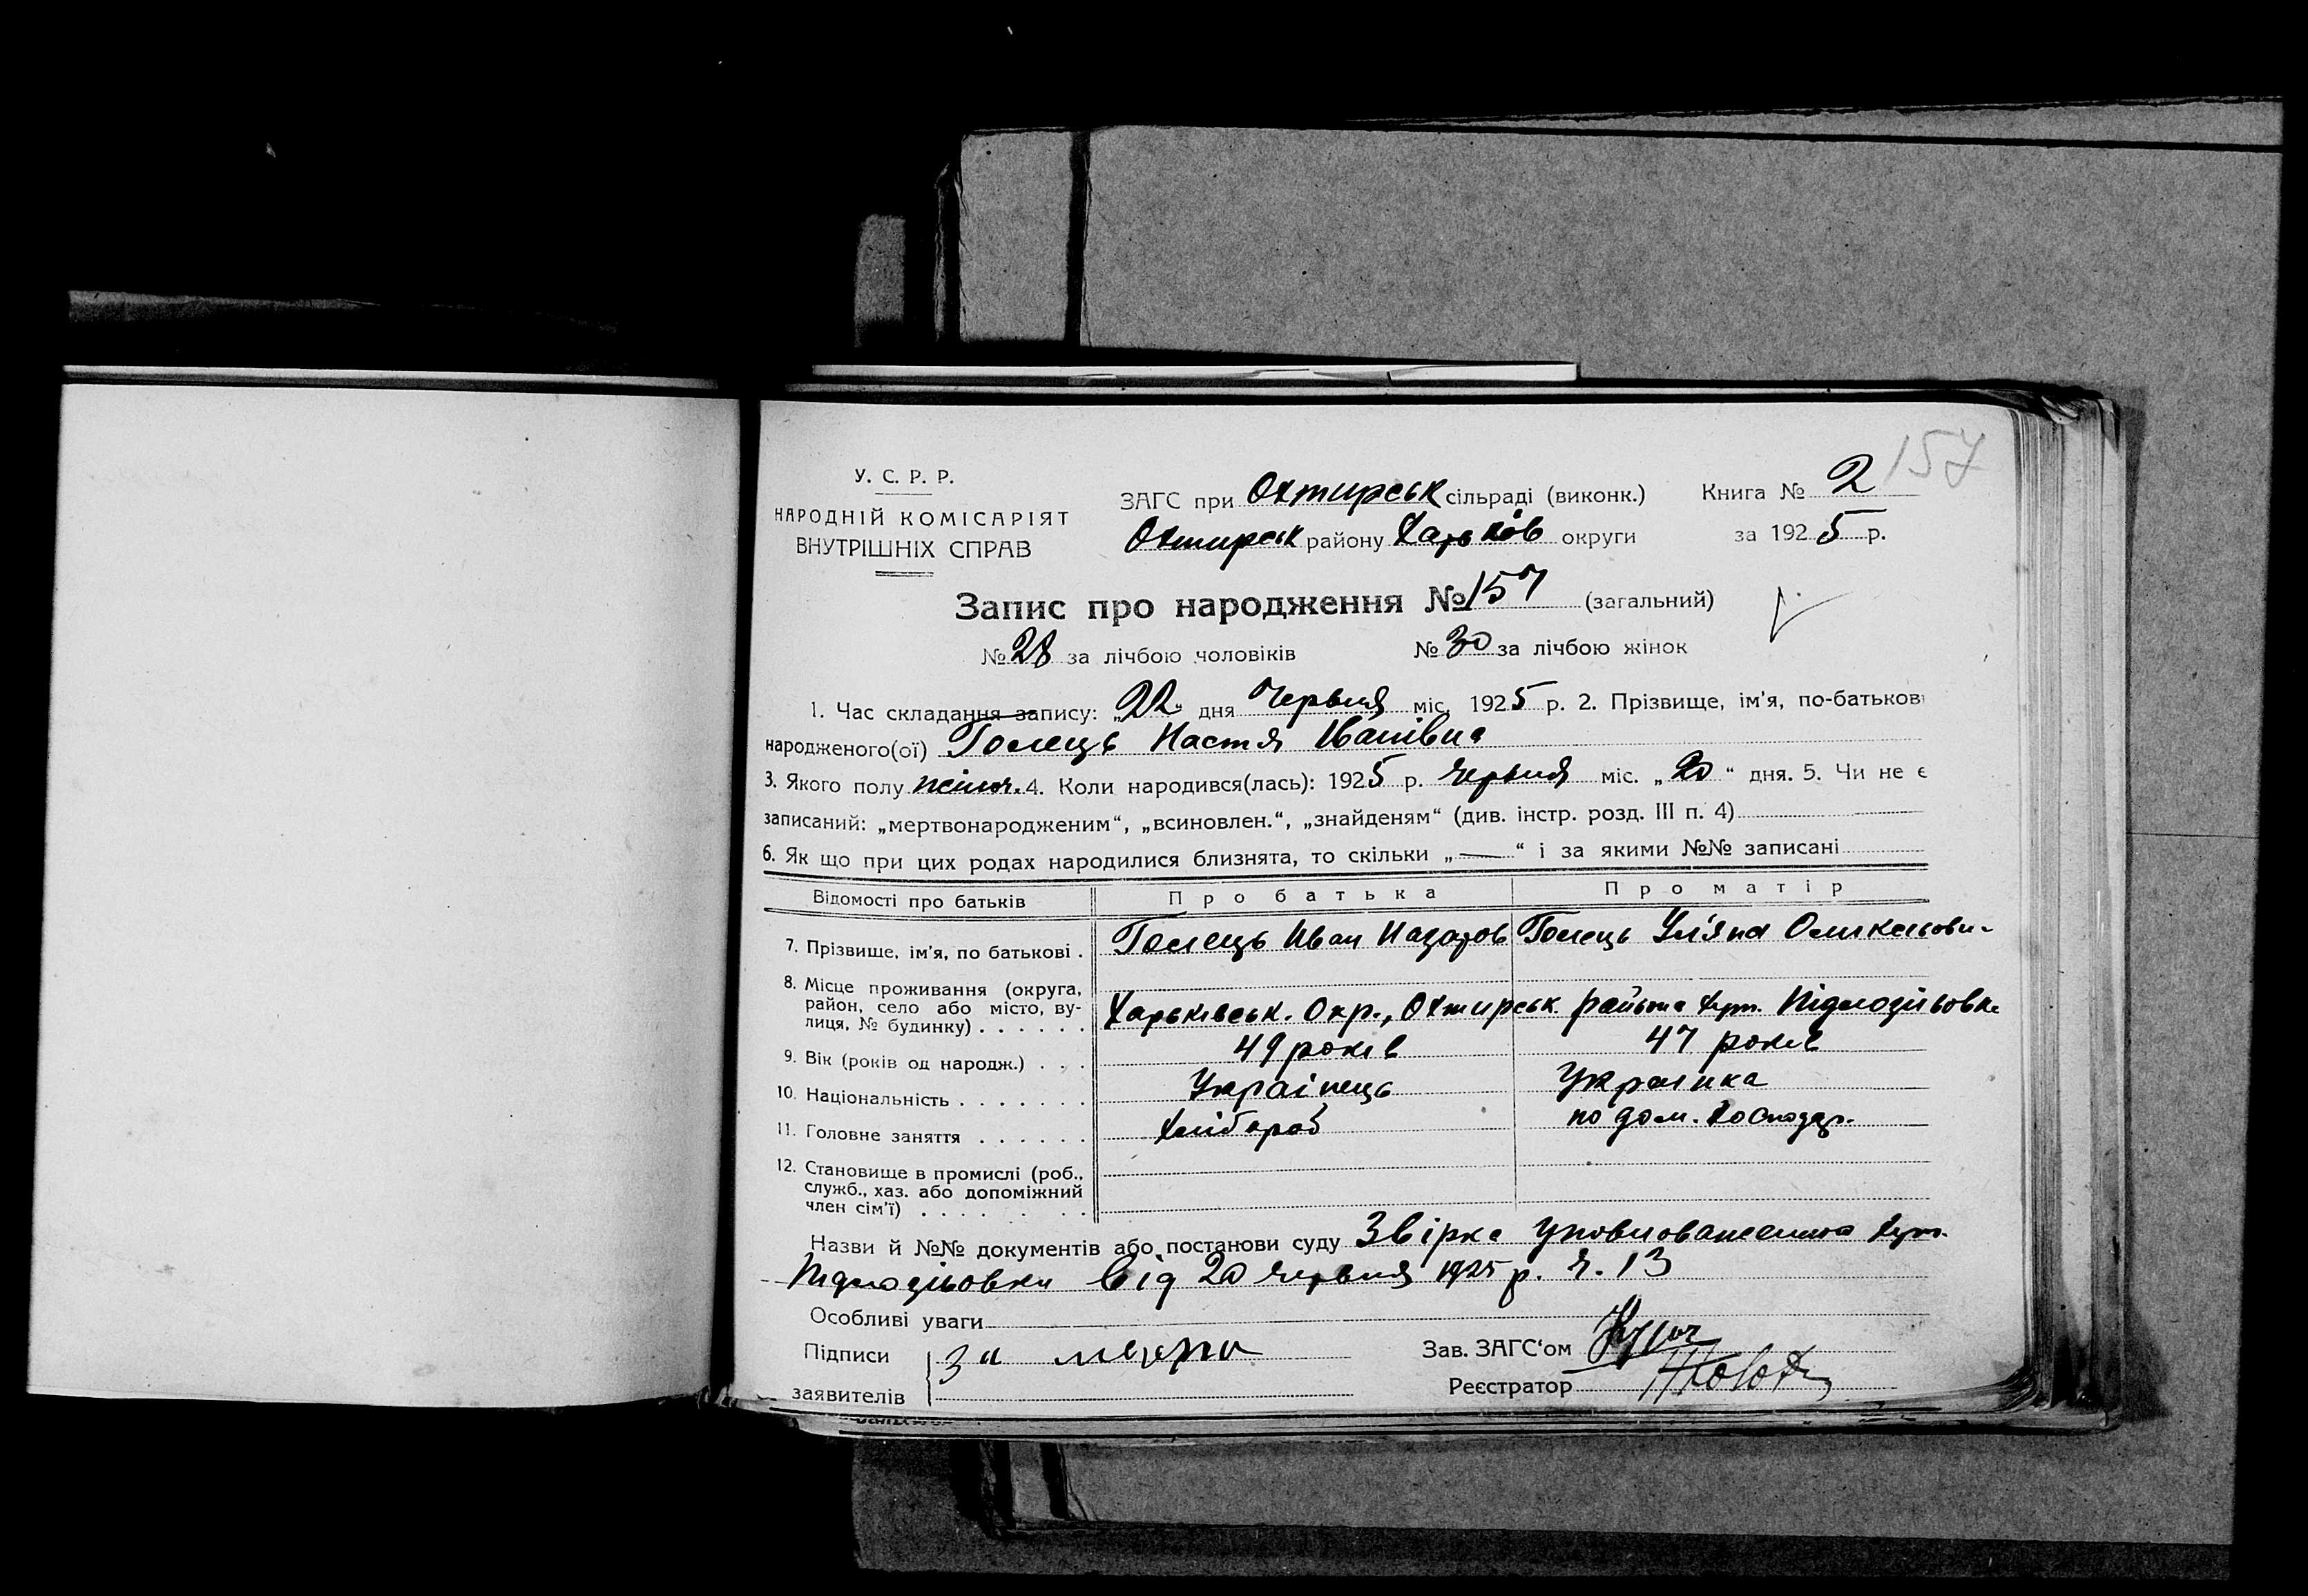 157
У. С. Р. Р.
НАРОДНІЙ КОМІСАРІЯТ
ВНУТРІШНІХ СПРАВ
ЗАГС при Охтирськ сільраді (виконк.) Книга № 2
Охтирськ району Харьков округи за 1925 р.
Запис про народження № 157 (загальний)
№ 28 за лічбою чоловіків № 30 за лічбою жінок
1. Час складання запису: „22“ дня Червня міс. 1925 р. 2. Прізвище, ім'я, по-батькові
народженого(ої) Голець Настя Иванівна
3. Якого полу жіноч. 4. Коли народився(лась): 1925 р. Червня міс. „20“ дня. 5. Чи не є
записаний: „мертвонародженим“, „всиновлен.“, „знайденям“ (див. інстр. розд. III п. 4)
6. Як що при цих родах народилися близнята, то скільки „—“ і за якими №№ записані
Відомості про батьків Про батька Про матір
7. Прізвище, ім'я, по батькові . Голець Иван Назаров Голець Уляна
8. Місце проживання (округа,
район, село або місто, ву-
лиця, № будинку) . . . . . . Харьківськ. Окр., Охтирськ. района хут.
9. Вік (років од народж.) . . . 49 років 47 років
10. Національність . . . . . . . Українець Українка
11. Головне заняття . . . . . . Хлібороб по дом. господар.
12. Становище в промислі (роб.,
служб., хаз. або допоміжний
член сім'ї) . . . . . . .
Назви й №№ документів або постанови суду Звірка уповноваженого хут.
від 20 червня 1925 р. Ч. 13
Особливі уваги
Підписи
заявителів
Зав. ЗАГС'ом
Реєстратор